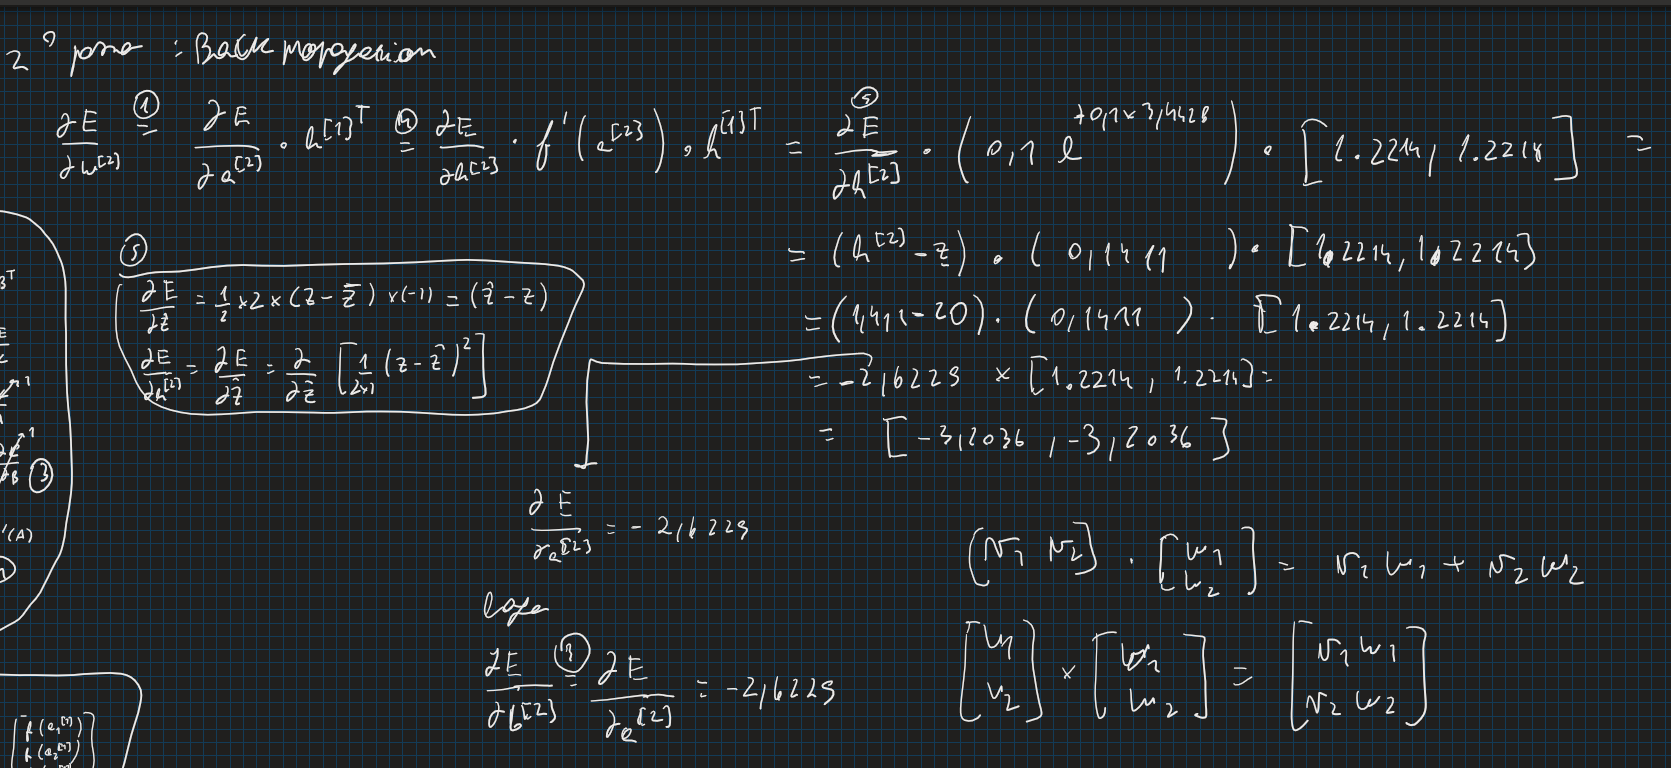 2º passo : Backpropagation
∂E/∂w^[2] =① ∂E/∂a^[2] · h^[1]ᵀ =④ ∂E/∂h^[2] · f'(a^[2]) · h^[1]ᵀ = ⑤ ∂E/∂h^[2] · (0,1 e^(+0,1×3,4428)) · [1.2214, 1.2214] =
= (h^[2] - z) · (0,1411) · [1.2214, 1.2214]
= (1,411-20) · (0,1411) · [1.2214, 1.2214]
= -2,6229 × [1.2214, 1.2214] =
= [-3,2036, -3,2036]
⑤
∂E/∂ẑ = 1/2 × 2 × (z - ẑ) × (-1) = (ẑ - z)
∂E/∂h^[2] = ∂E/∂ẑ = ∂/∂ẑ [1/(2×1) (z - ẑ)²]
∂E/∂a^[2] = -2,6229
logo
∂E/∂b^[2] =③ ∂E/∂a^[2] = -2,6229
[v₁ v₂] · [w₁ w₂] = v₁w₁ + v₂w₂
[v₁ v₂] × [w₁ w₂] = [v₁w₁ v₂w₂]
③
'(A)
[f(a₁^[1])
f(a₂^[1])]